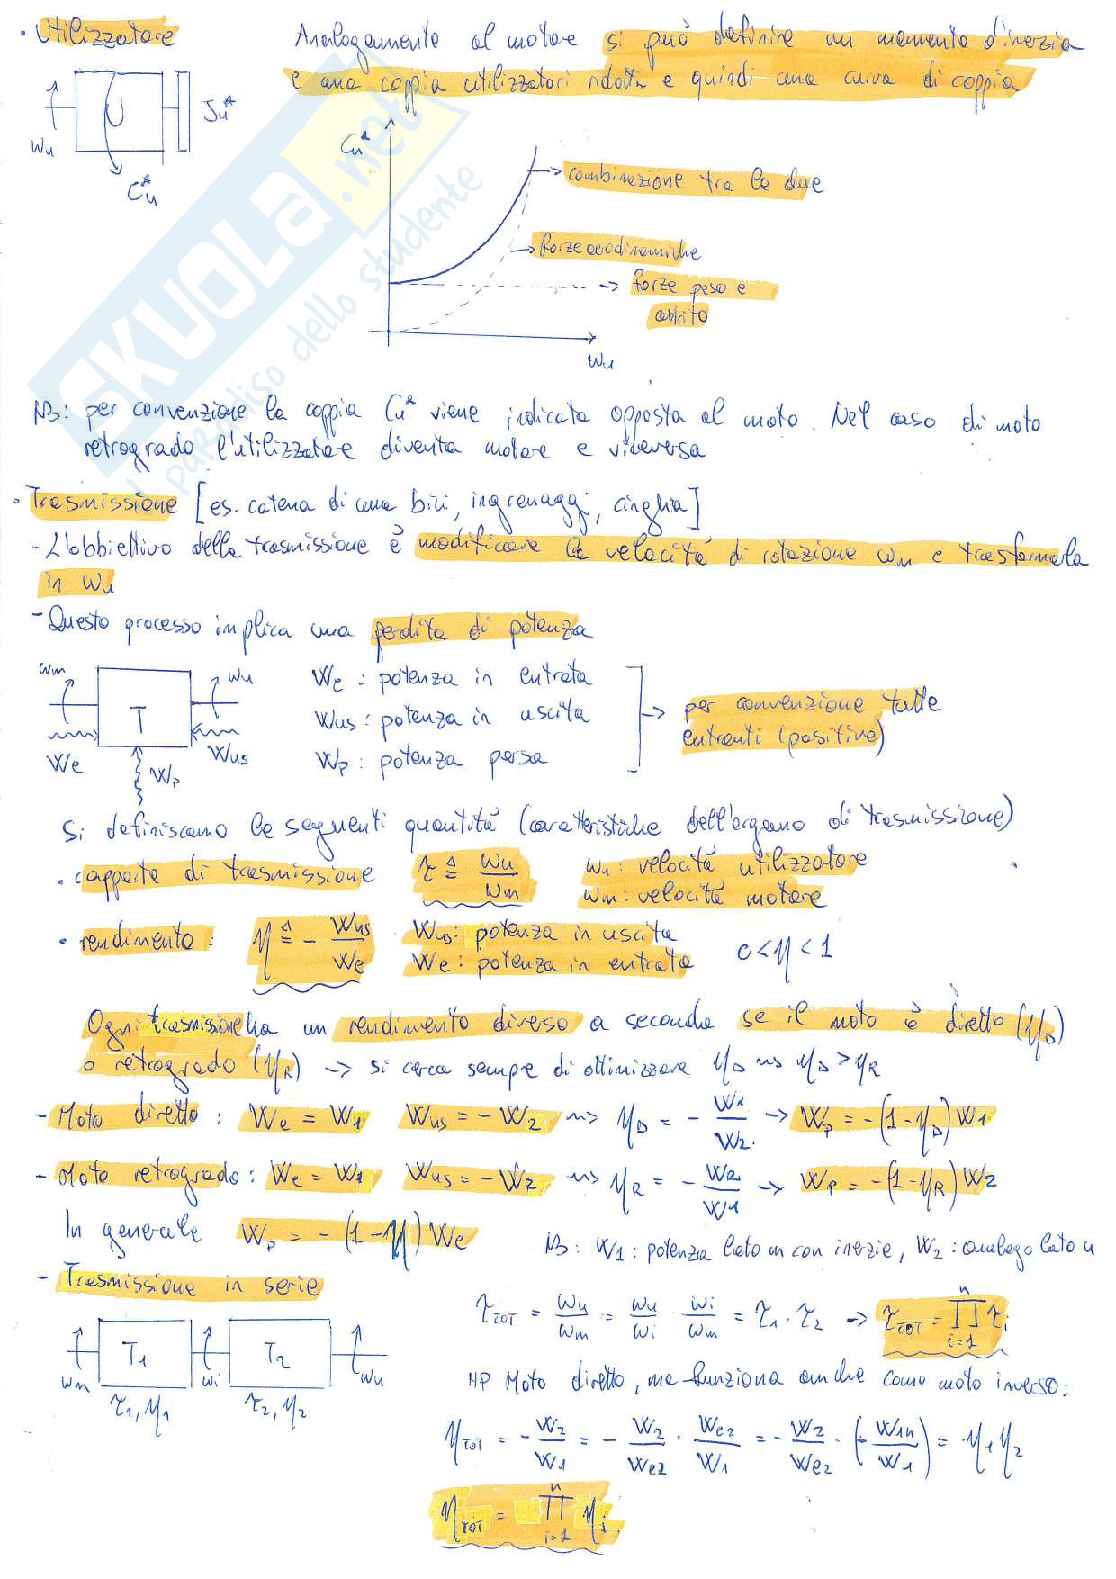 • Utilizzatore
Analogamente al motore si può definire un momento d'inerzia
e una coppia utilizzatori ridotta e quindi una curva di coppia
U
Ju*
ωu
Cu*
Cu*
combinazione tra le due
forze aerodinamiche
forze peso e
attrito
ωu
SKUOLA.net
il paradiso dello studente
NB: per convenzione la coppia Cu* viene indicata opposta al moto. Nel caso di moto
retrogrado l'utilizzatore diventa motore e viceversa
• Trasmissione [es. catena di una bici, ingranaggi, cinghia]
- L'obbiettivo della trasmissione è modificare la velocità di rotazione ωm e trasformarla
in ωu
- Questo processo implica una perdita di potenza
ωm T ωu
We Wp Wus
We : potenza in entrata
Wus : potenza in uscita
Wp : potenza persa
→ per convenzione tutte
entranti (positive)
Si definiscono le seguenti quantità (caratteristiche dell'organo di trasmissione)
• rapporto di trasmissione τ ≜ ωu/ωm ωu: velocità utilizzatore
ωm: velocità motore
• rendimento: η ≜ - Wus/We Wus: potenza in uscita
We: potenza in entrata 0<η<1
Ogni trasmissione ha un rendimento diverso a seconda se il moto è diretto (ηD)
o retrogrado (ηR) → si cerca sempre di ottimizzare ηD ⇝ ηD > ηR
- Moto diretto: We = W1 Wus = - W2 ⇝ ηD = - W1/W2 → Wp = -(1-ηD)W1
- Moto retrogrado: We = W2 Wus = - W2 ⇝ ηR = - W2/W1 → Wp = -(1-ηR)W2
In generale Wp = - (1-η) We
NB: W1: potenza lato m con inerzie, W2: analogo lato u
- Trasmissione in serie
ωm T1 ωi T2 ωu
τ1, η1 τ2, η2
τTOT = ωu/ωm = ωu/ωi · ωi/ωm = τ1 · τ2 → τTOT = ∏ i=1 n τi
HP Moto diretto, ma funziona anche come moto inverso:
ηTOT = - W2/W1 = - W2/We2 · We2/W1 = - W2/We2 · (- W1u/W1) = η1 η2
ηTOT = ∏ i=1 n ηi